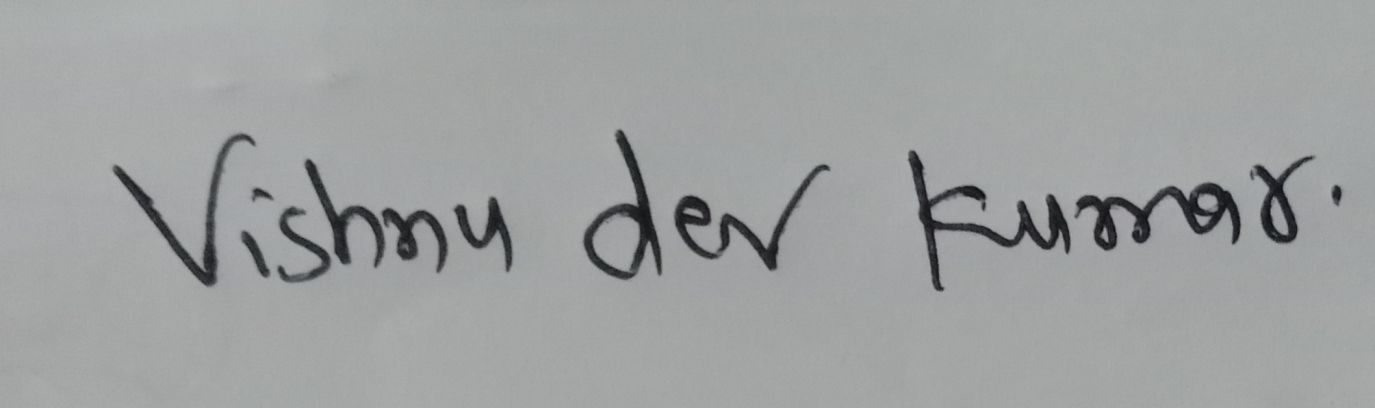 Vishnu dev Kumar.